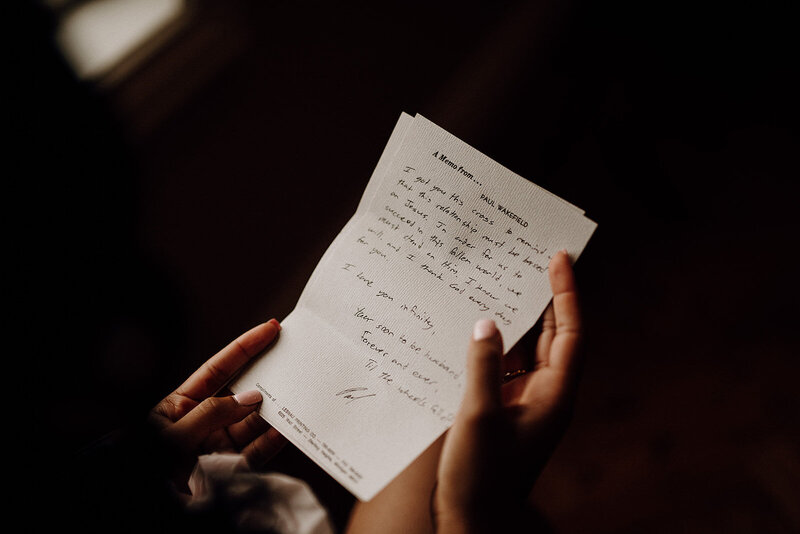 A Memo from....
PAUL WAKEFIELD
I got you this cross to remind
that this relationship must be based
on Jesus. In order for us to
succeed in this fallen world, we
must stand on Him. I know we
will, and I thank God every day
for you.
I love you infinitely,
Your soon to be husband,
Forever and ever,
Til the wheels fall
Paul
Compliments of
PRINTING CO.